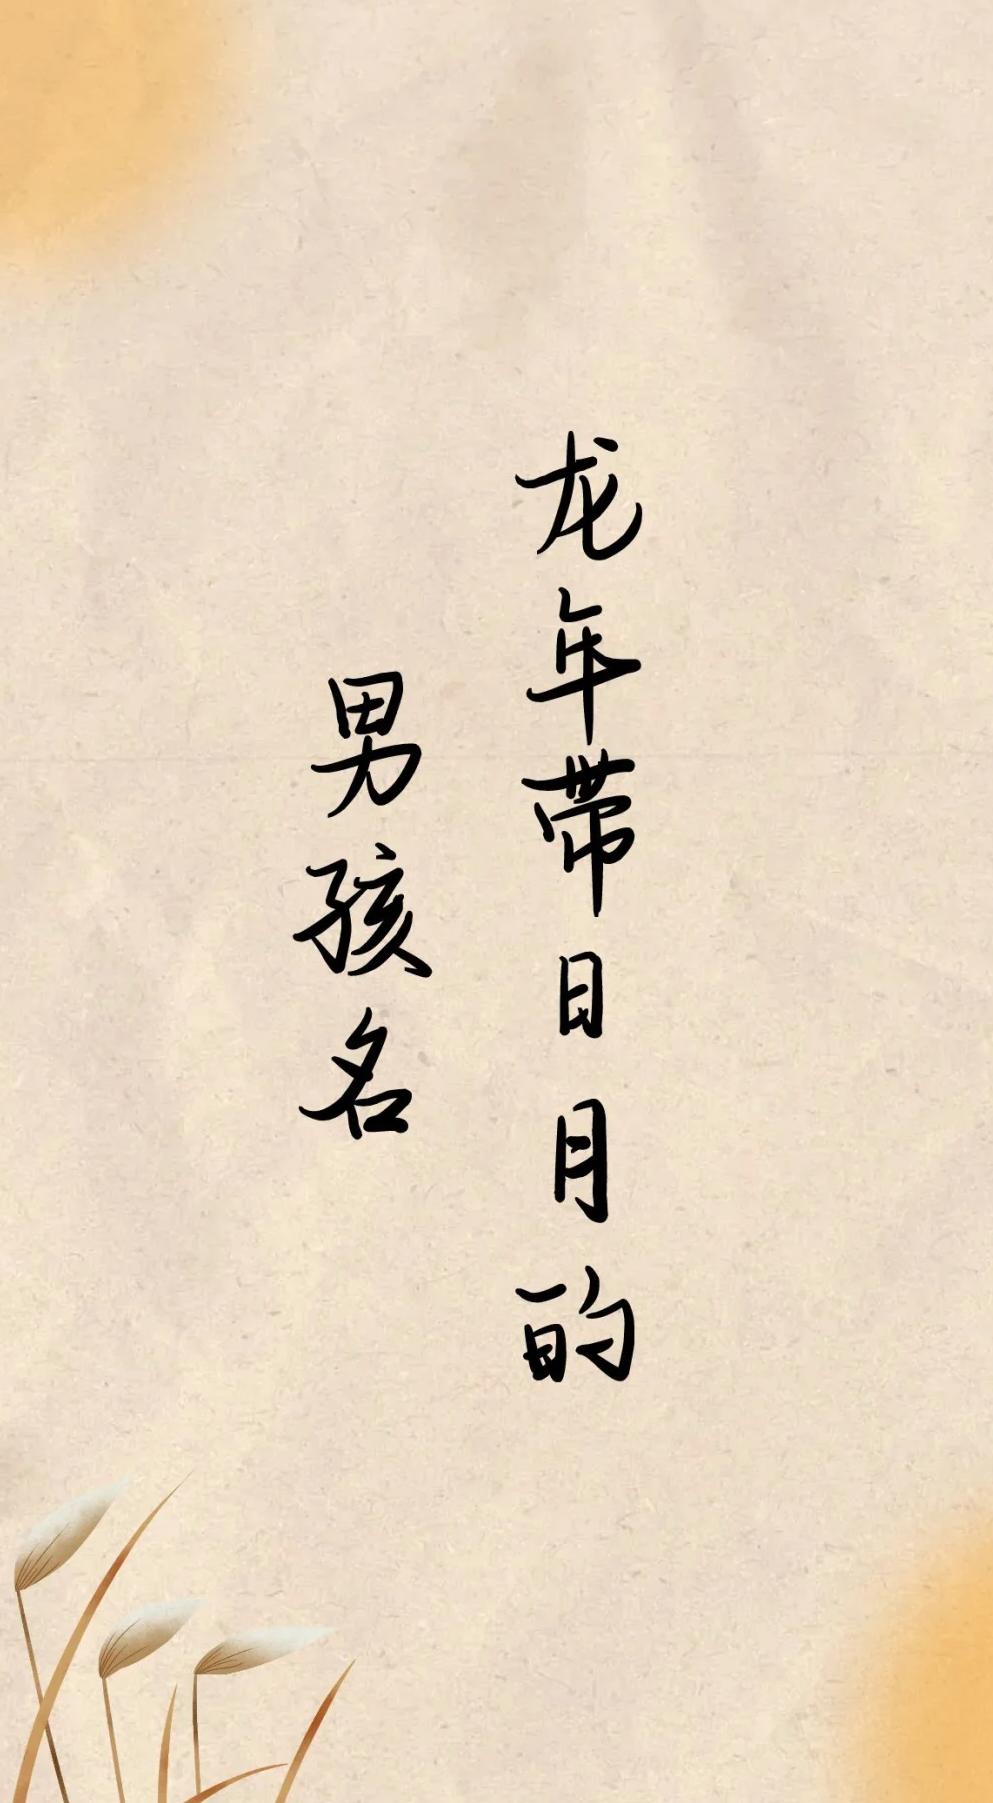 龙年带日月的
男孩名